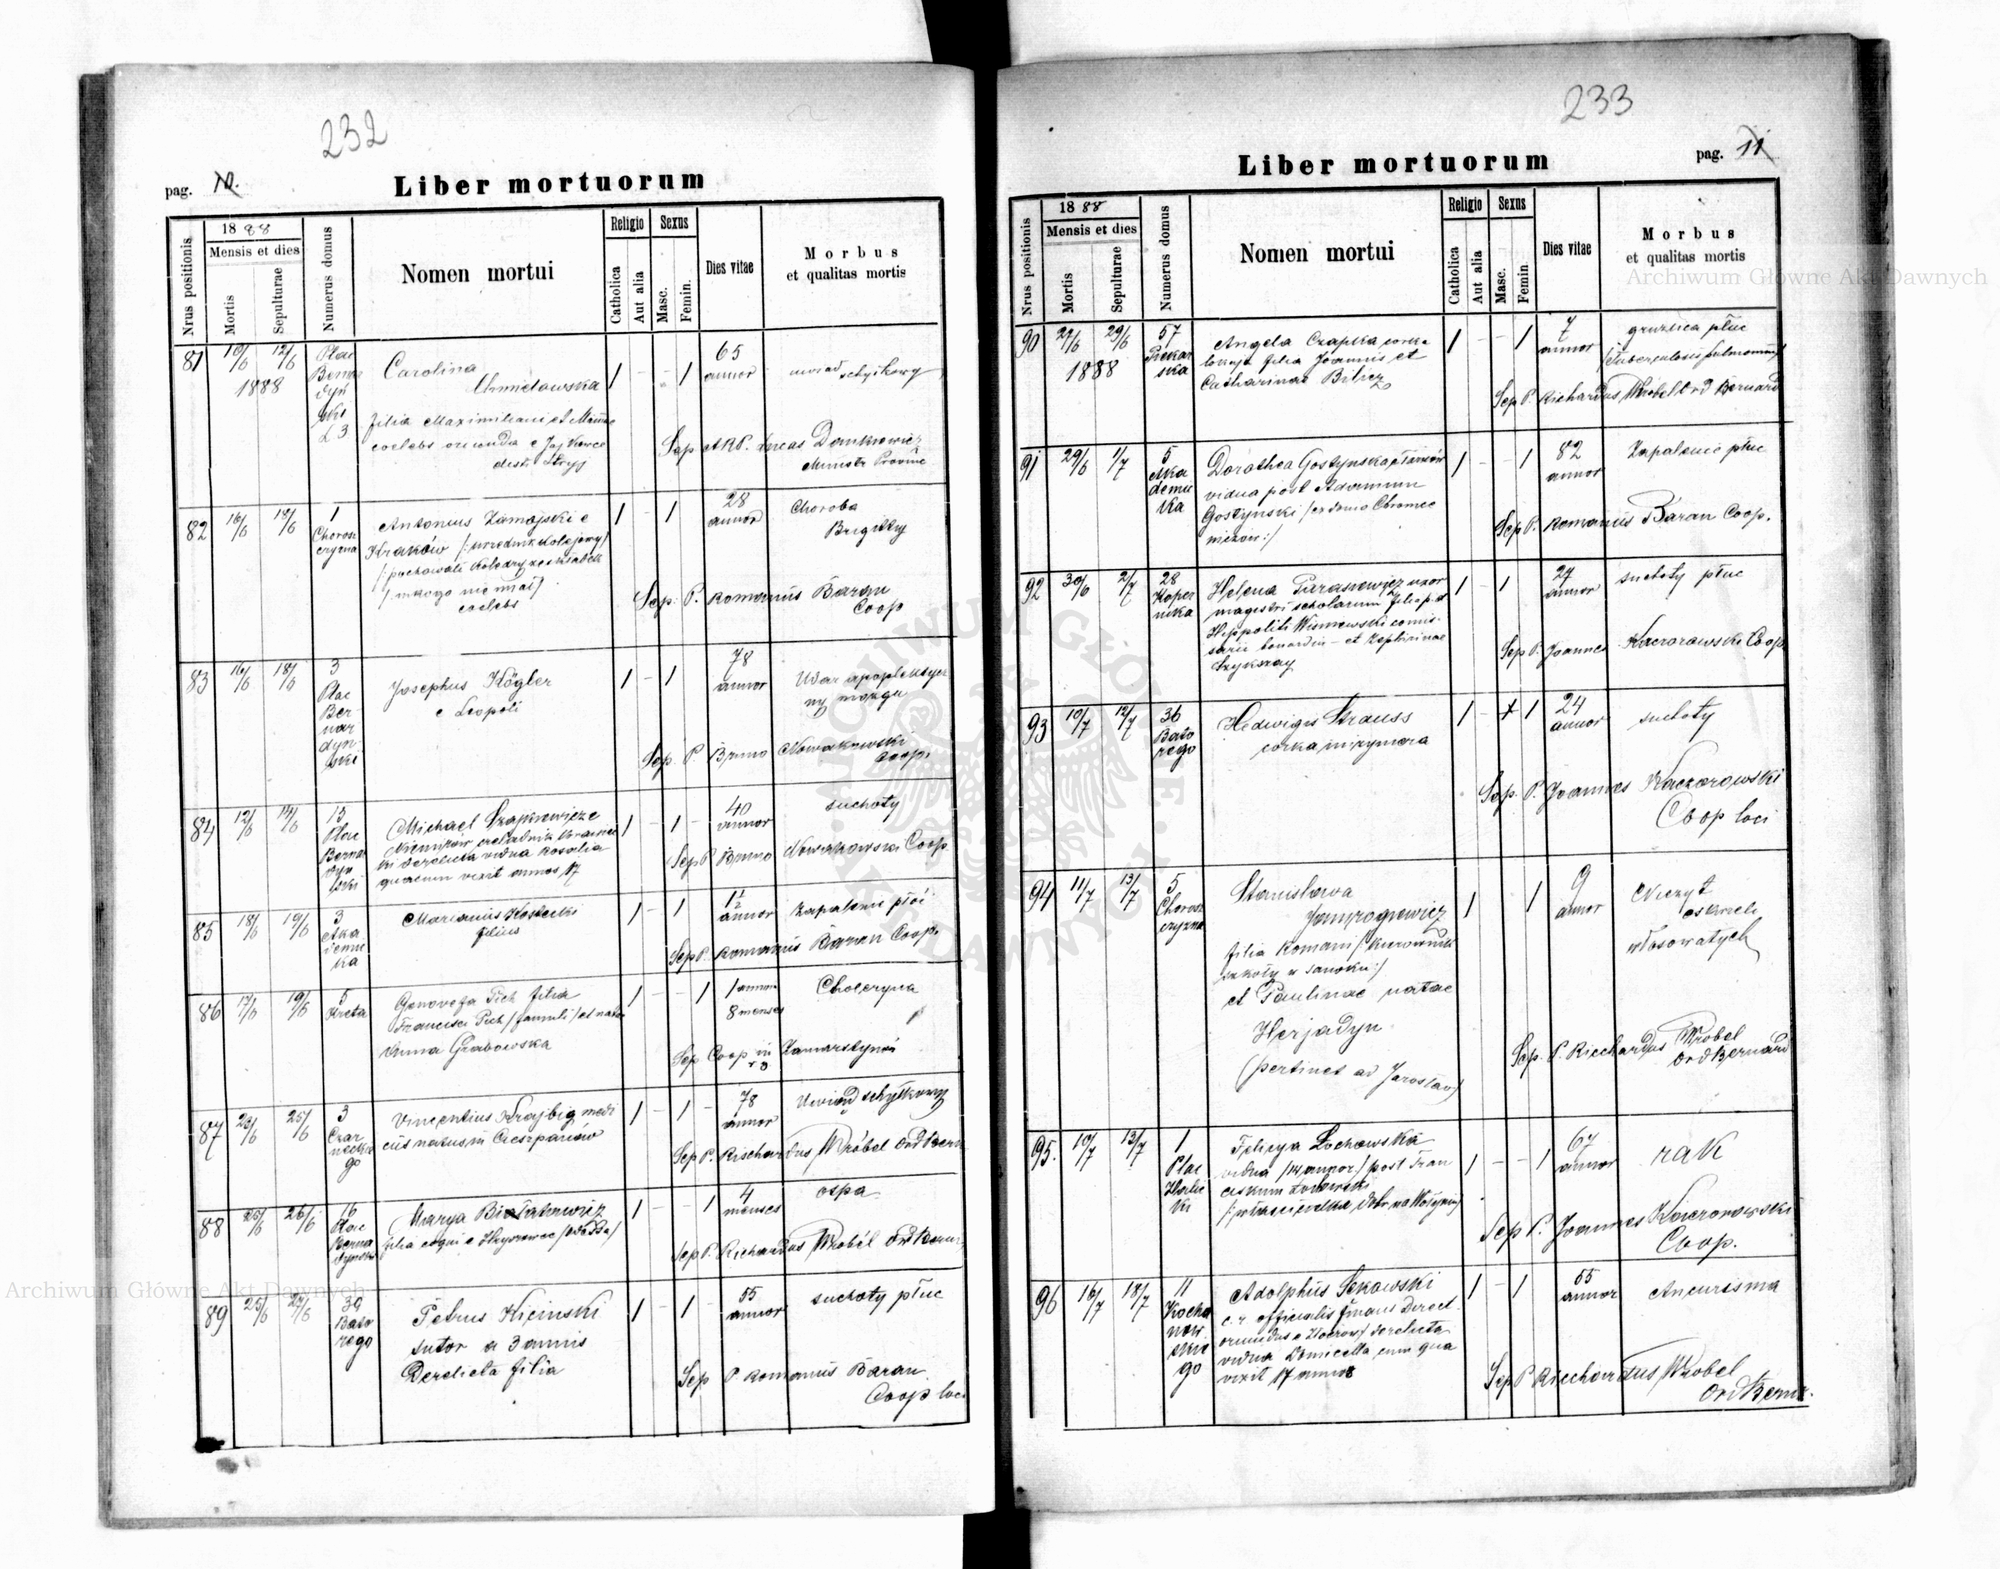 232
pag. 10.
Liber mortuorum
Nrus positionis
1888
Mensis et dies
Mortis
Sepulturae
Numerus domus
Nomen mortui
Religio
Catholica
Aut alia
Sexus
Masc.
Femin.
Dies vitae
Morbus
et qualitas mortis
81 10/6 12/6
1888
Plac
Bernar
dyń
ski
L 3
Carolina
Chmielowska
filia Maximiliani et
coelebs oriunda e
distr. Stryj
1 - - 1
65
annor
uwiąd schyłkowy
Sep ARP. Lucas Dankiewicz
Ministr Provinc
82 16/6 18/6
1
Chorosz
czyzna
Antonius Zamojski e
Kraków /: urzednik kolejowy/
/: pochowali Koledzy
/ nikogo nie miał /
coelebs
1 - 1
28
annor
Choroba
Brigthy
Sep. P. Romanus Baran
Coop
83 16/6 18/6
3
Plac
Ber-
nar
dyn-
ski
Josephus Kögler
e Leopoli
1 - 1
78
annor
Udar apoplektycz
ny mozgu
Sep. P. Bruno Nowakowski
Coop.
84 12/6 14/6
13
Plac
Berna
dyn
ski
Michael
czeladnik krawiec
ki derelicta vidua Rosalia
quacum vixit annos 17
1 - 1 -
40
annor
suchoty
Sep P Bruno Nowakowski Coop.
85 18/6 19/6
3
Aka
demic
ka
Marianus Kostecki
filius
1 - 1
1/2
annor
Zapalenie płuc
Sep P. Romanus Baran Coop.
86 17/6 19/6
5
Kreta
Genovefa Pich filia
Francisci Pich / famuli / et natae
Anna Grabowska
1 - - 1
1 annor
8 menses
Choleryna
Sep Coop in Zamarstynów
87 23/6 25/6
3
Czar
neckie
go
Vincentius Krajbig medi
cus natus in Cieszpanów
1 - 1 -
78
annor
Uwiąd schyłkowy
Sep P. Rischardus Wróbel Ord Bern
88 25/6 26/6
16
Plac
Berna
dyński
Marya
filia coqui e
1 - - 1
4
menses
ospa
Sep P. Richardus Wrobel Ord Bern.
89 25/6 27/6
39
Bato
rego
Petrus Kicinski
sutor a 3 annis
Derelicta filia
1 - 1 -
55
annor
suchoty płuc
Sep P Romanus Baran
Coop loci
233
pag. 11
Liber mortuorum
Nrus positionis
1888
Mensis et dies
Mortis
Sepulturae
Numerus domus
Nomen mortui
Religio
Catholica
Aut alia
Sexus
Masc.
Femin.
Dies vitae
Morbus
et qualitas mortis
90 27/6 29/6
1888
57
Piekar
ska
Angela Czapka corka
lokaja filia Joannis et
Catharinae Bilicz
1 - - 1
7
annor
gruzlica płuc
(Tuberculosis pulmonum)
Sep P. Richardus Wrobel Ord Bernard
91 29/6 1/7
5
Aka
demic
ka
Dorothea Gostynska
vidua post Adamum
Gostynski
1 - - 1
82
annor
Zapalenie płuc
Sep P. Romanus Baran Coop.
92 30/6 2/7
28
Koper
nika
Helena Tarasiewicz uxor
magistri scholarum filia p.
Hippoliti Wisniewski comis-
sarii et Zephirinae
1 - 1
24
annor
suchoty płuc
Sep P. Joannes Kaczorowski Coop
93 10/7 12/7
36
Bato
rego
Hedwigis Strauss
corka inżyniera
1 - 1
24
annor
suchoty
Sep. P. Joannes Kaczorowski
Coop loci
94 11/7 13/7
5
Chorosz
czyzna
Stanisława
Jamrogiewicz
filia Romani / kierownik
szkoły w Sanoku :/
et Paulinae natae
Herjadyn
(pertinet ad Jarosław)
1 1
9
annor
Nieżyt
oskrzeli
włosowatych
Sep. P. Riechardus Wrobel
Ord Bernard
95. 10/7 13/7
1
Plac
Halic
ki
Felicya Łochowska
vidua / 14 annor / post Fran
ciskum
1 - - 1
67
annor
rak
Sep P. Joannes Kaczorowski
Coop.
96 16/7 18/7
11
Kocha
now
skie
go
Adolphus Sękowski
c. r. officialis finans Direct.
oriundus e derelicta
vidua Domicella cum qua
vixit 17 annos
1 - 1
55
annor
Aneurisma
Sep P Riechardus Wrobel
Ord Bern.
Archiwum Główne Akt Dawnych
Archiwum Główne Akt Dawnych
ARCHIWUM GŁÓWNE AKT DAWNYCH